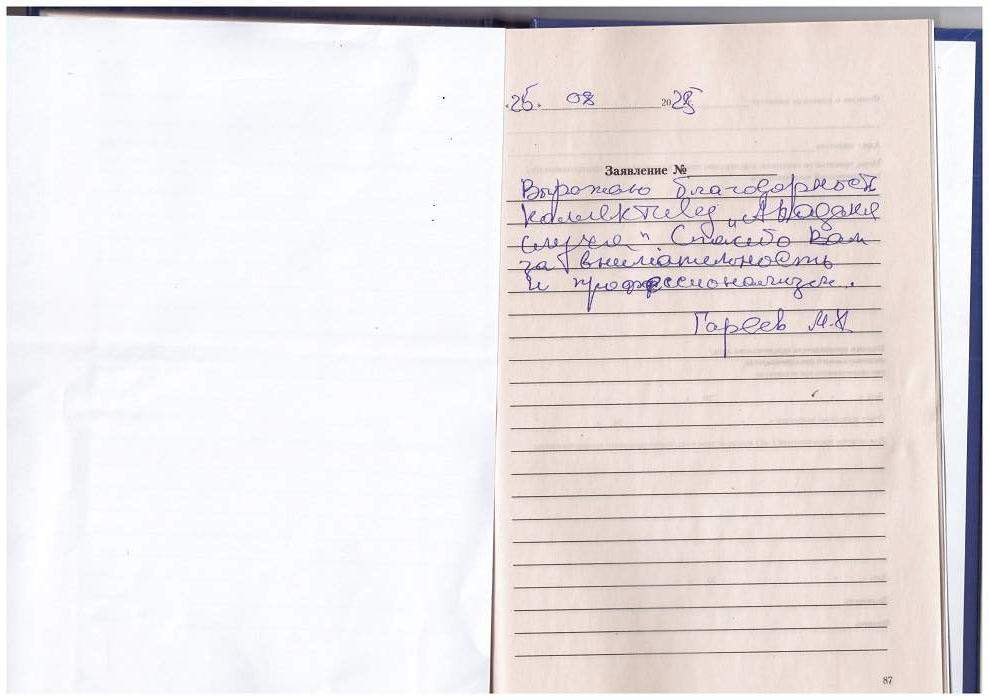 «25» 08 2025
Заявление №
Выражаю благодарность
коллективу „Академия
слуха" Спасибо Вам
за внимательность
и профессионализм.
Гареев М.Н
87